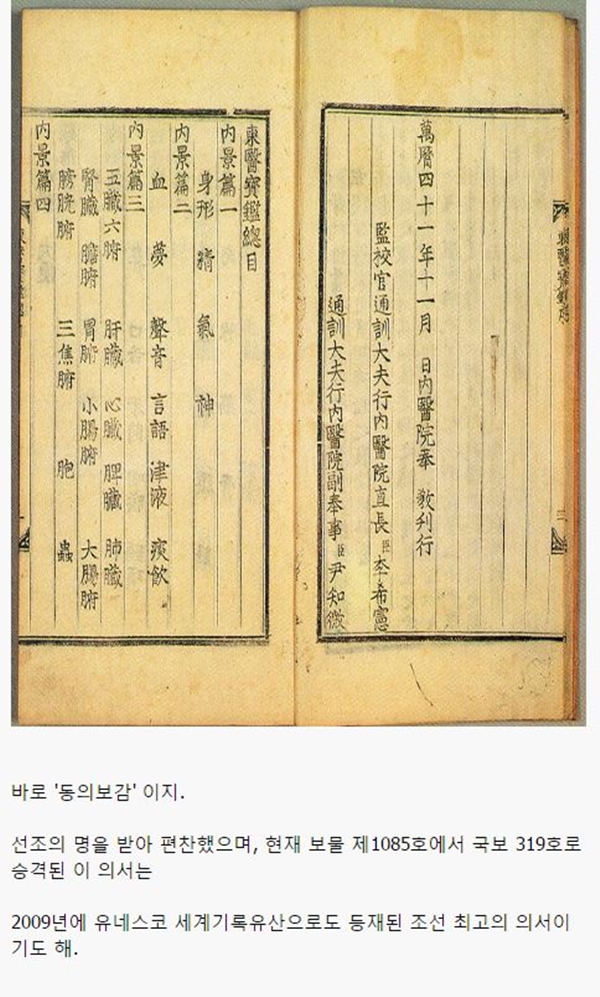 萬曆四十一年十一月 日內醫院奉 敎刊行
監校官通訓大夫行內醫院直長臣李希憲
通訓大夫行內醫院副奉事臣尹知微
東醫寶鑑總目
內景篇一
身形 精 氣 神
內景篇二
血 夢 聲音 言語 津液 痰飮
內景篇三
五臟六腑 肝臟 心臟 脾臟 肺臟
腎臟 膽腑 胃腑 小腸腑 大腸腑
膀胱腑 三焦腑 胞 蟲
內景篇四
바로 '동의보감' 이지.
선조의 명을 받아 편찬했으며, 현재 보물 제1085호에서 국보 319호로
승격된 이 의서는
2009년에 유네스코 세계기록유산으로도 등재된 조선 최고의 의서이
기도 해.